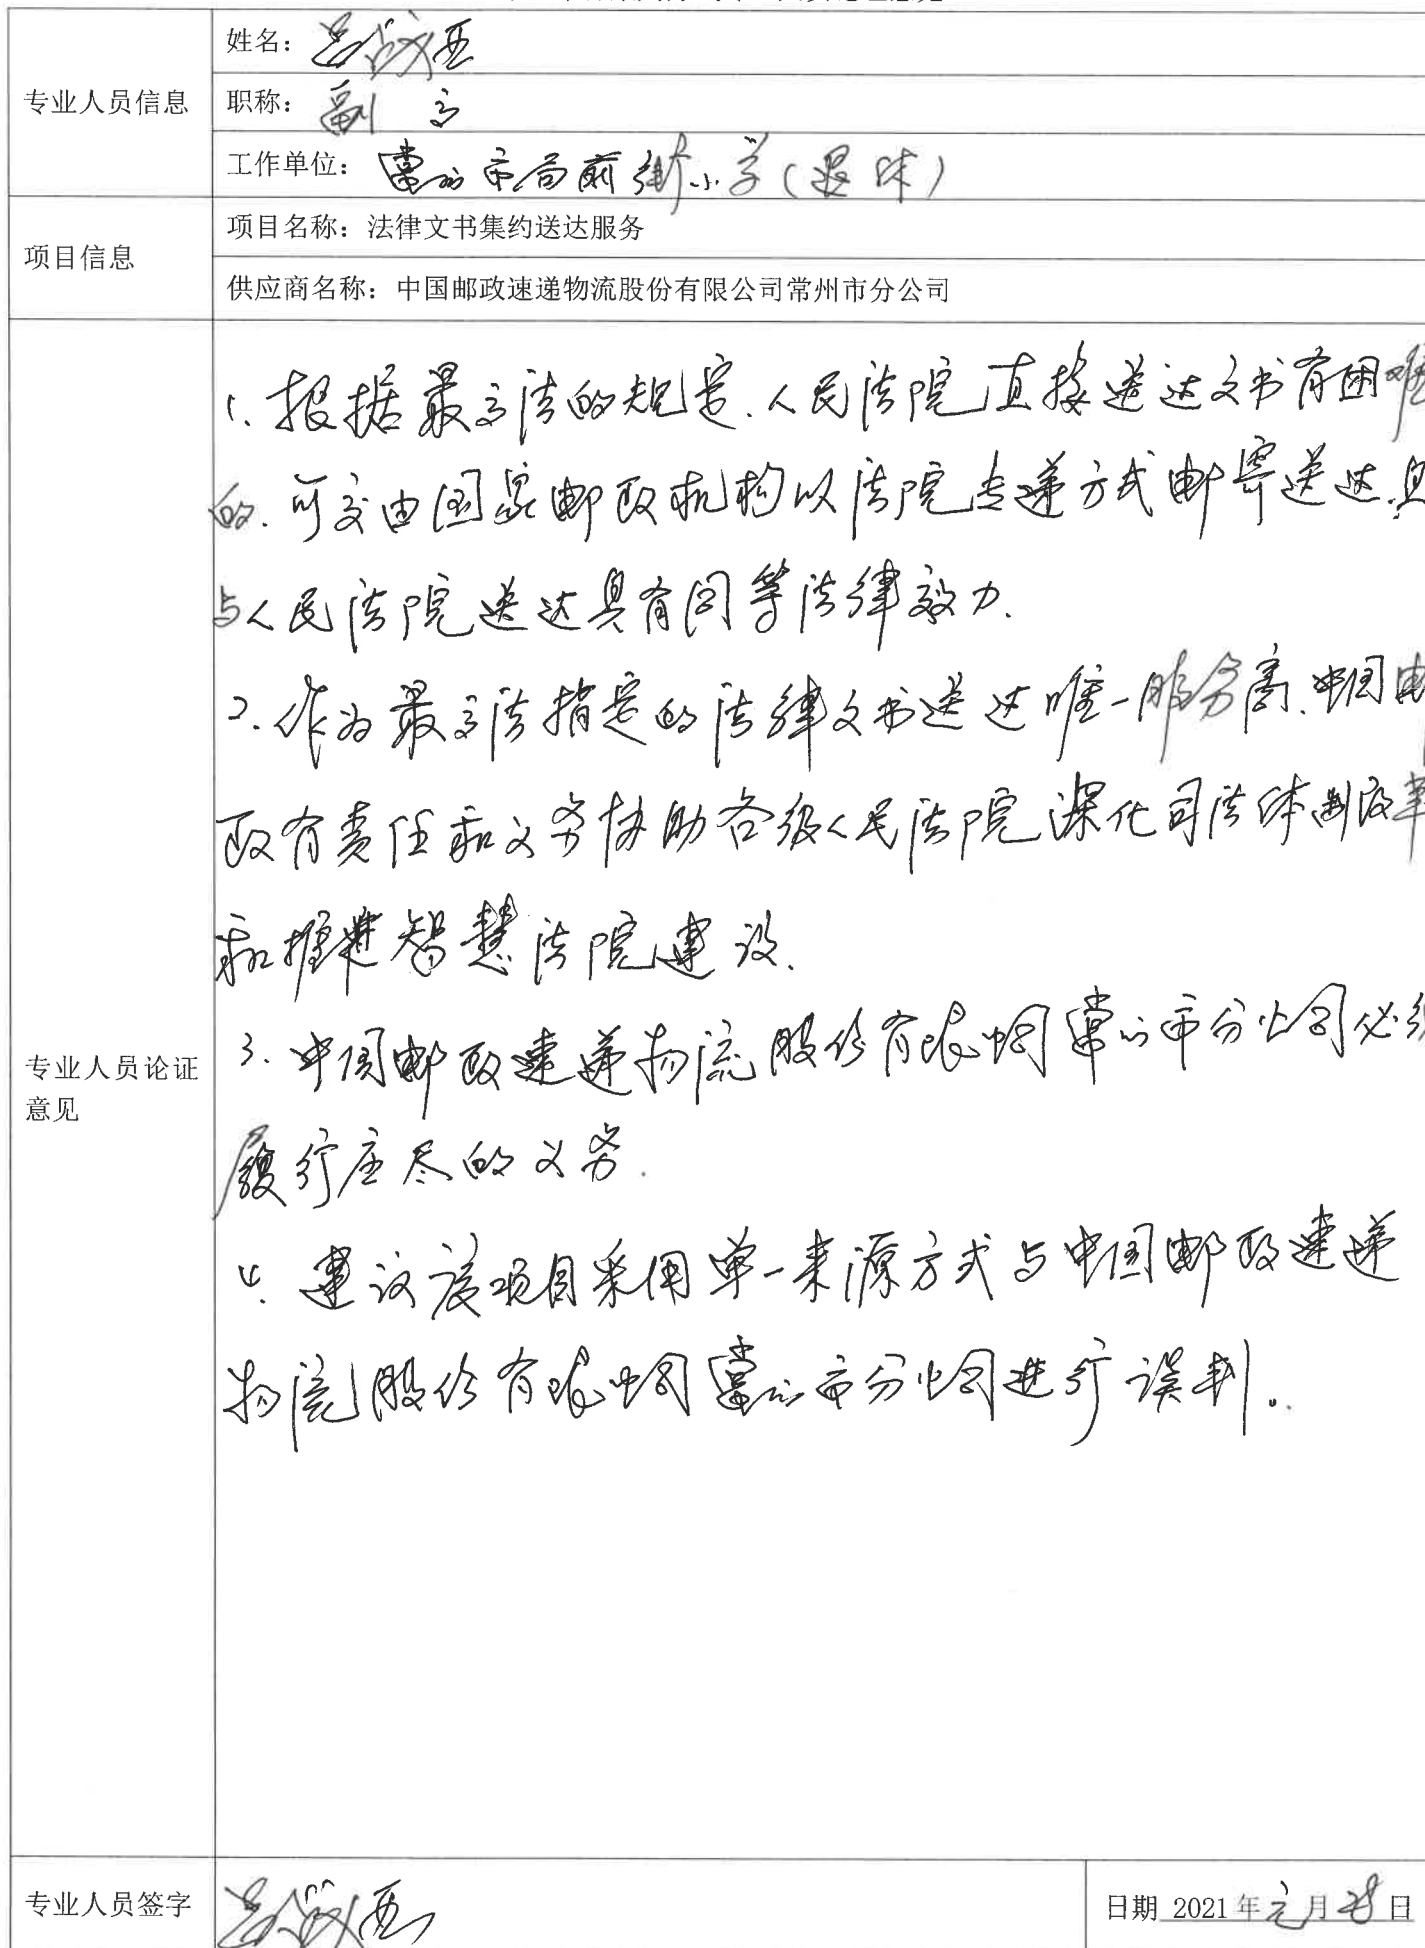 专业人员信息
姓名：
职称：副高
工作单位：常州市局前街小学（退休）
项目信息
项目名称：法律文书集约送达服务
供应商名称：中国邮政速递物流股份有限公司常州市分公司
专业人员论证
意见
1、根据最高法的规定、人民法院直接送达文书有困难
的、可交由国家邮政机构以法院专递方式邮寄送达、且
与人民法院送达具有同等法律效力.
2、作为最高法指定的法律文书送达唯一服务商、中国邮
政有责任和义务协助各级人民法院深化司法体制改革
和推进智慧法院建设.
3、中国邮政速递物流股份有限公司常州市分公司必须
履行应尽的义务.
4、建议该项目采用单一来源方式与中国邮政速递
物流股份有限公司常州市分公司进行谈判。
专业人员签字
日期 2021年元月28日